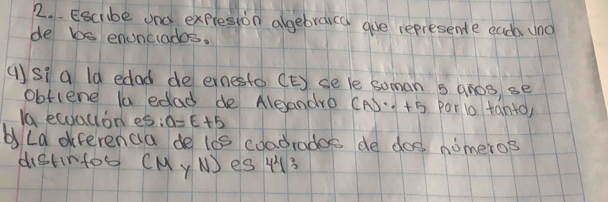 2... Escribe una expresión algebraica que represente cada uno
de los enunciados.
a) si a la edad de ernesto (E) se le suman 5 años, se
obtiene la edad de Alejandro (A)... +5 Por lo tanto,
la ecuación es: a=E+5
b) La diferencia de los cuadrados de dos números
distintos (M y N) es 443